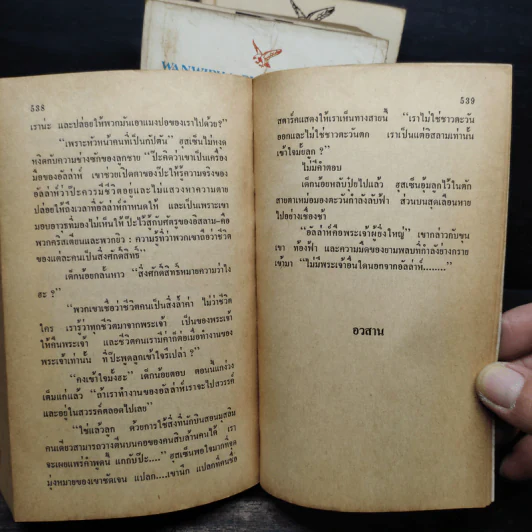 WANWIPA
538
เราน่ะ และปล่อยให้พวกมันเอาแมงป่องของเราไปด้วย?"
"เพราะหัวหน้าคนที่เป็นกัปตัน" ฮุสเซ็นไม่หงุด
หงิดกับความช่างซักของลูกชาย "ป๊ะคิดว่าเขาเป็นเครื่อง
มือของอัลล่าห์ เขาช่วยเปิดตาของป๊ะให้รู้ความจริงของ
อัลล่าห์ว่าป๊ะควรมีชีวิตอยู่และไม่แสวงหาความตาย
ปล่อยให้ถึงเวลาที่อัลล่าห์กำหนดให้ และเป็นเพราะเขา
มอบอาวุธที่มองไม่เห็นให้ ป๊ะไว้สู้กับศัตรูของอิสลาม-คือ
พวกคริสเตียนและพวกยิว : ความรู้ที่ว่าพวกเขาถือว่าชีวิต
ของแต่ละคนเป็นสิ่งศักดิ์สิทธิ์"
เด็กน้อยกลั้นหาว "สิ่งศักดิ์สิทธิ์หมายความว่าไง
ฮะ ?"
"พวกเขาเชื่อว่าชีวิตคนเป็นสิ่งล้ำค่า ไม่ว่าชีวิต
ใคร เรารู้ว่าทุกชีวิตมาจากพระเจ้า เป็นของพระเจ้า
ให้คืนพระเจ้า และชีวิตคนเรามีค่าก็ต่อเมื่อทำงานของ
พระเจ้าเท่านั้น ที่ป๊ะพูดลูกเข้าใจรึเปล่า ?"
"คงเข้าใจมั้งฮะ" เด็กน้อยตอบ ตอนนี้แกง่วง
เต็มแก่แล้ว "ถ้าเราทำงานของอัลล่าห์เราจะไปสวรรค์
และอยู่ในสวรรค์ตลอดไปเลย"
"ใช่แล้วลูก ด้วยการใช้สิ่งที่นักบินสอนมุสลิม
คนเดียวสามารถวางตีนบนคอของคนสิบล้านคนได้ เรา
จะเผยแพร่คำพูดนี้ แกกับป๊ะ...." ฮุสเซ็นพอใจมากที่จุด
มุ่งหมายของเขาชัดเจน แปลก....เขานึก แปลกที่คนชื่อ
539
สตาร์คแสดงให้เราเห็นทางสายนี้ "เราไม่ใช่ชาวตะวัน
ออกและไม่ใช่ชาวตะวันตก เราเป็นแต่อิสลามเท่านั้น
เข้าใจมั้ยลูก ?"
ไม่มีคำตอบ
เด็กน้อยหลับปุ๋ยไปแล้ว ฮุสเซ็นอุ้มลูกไว้ในตัก
สายตาเหม่อมองตะวันกำลังลับฟ้า ส่วนบนสุดเลื่อนหาย
ไปอย่างเชื่องช้า
"อัลล่าห์คือพระเจ้าผู้ยิ่งใหญ่" เขากล่าวกับขุน
เขา ท้องฟ้า และความมืดของยามพลบที่กำลังย่างกราย
เข้ามา "ไม่มีพระเจ้าอื่นใดนอกจากอัลล่าห์........"
อวสาน